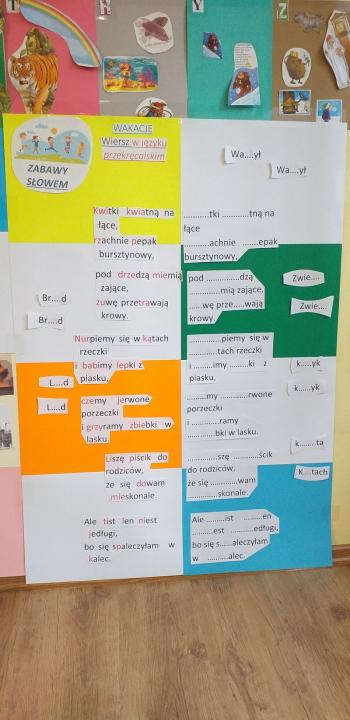 T
Y
Z
ZABAWY
SŁOWEM
WAKACJE
Wiersz w języku
przekręcalskim
Kwitki kwiatną na
łące,
rzachnie pepak
bursztynowy,
pod drzedzą miemią
zające,
żuwę przetrawają
krowy.
Nurpiemy się w kątach
rzeczki
i babimy lepki z
piasku,
czemy jerwone
porzeczki
i grzyramy zbiebki w
lasku.
Liszę piścik do
rodziców,
że się dowam
mieskonale.
Ale tist len niest
jedługi,
bo się spaleczyłam w
kalec.
Br....d
Br....d
L....d
L....d
Wa....ył
Wa....ył
...........tki ............tną na
łące
.........achnie ......epak
bursztynowy,
pod ............dzą
......mią zające,
......wę prze.....wają
krowy.
..........piemy się w
......tach rzeczki
i ........imy .....ki z
piasku,
.......my .........rwone
porzeczki
i ..........ramy
......bki w lasku.
.........szę ......ścik
do rodziców,
że się ......wam
......skonale.
Ale .......ist ......en
......est ......edługi,
bo się s.....aleczyłam
w ......alec.
Zwie....
Zwie....
k.....yk
k.....yk
k......ta
K....tach